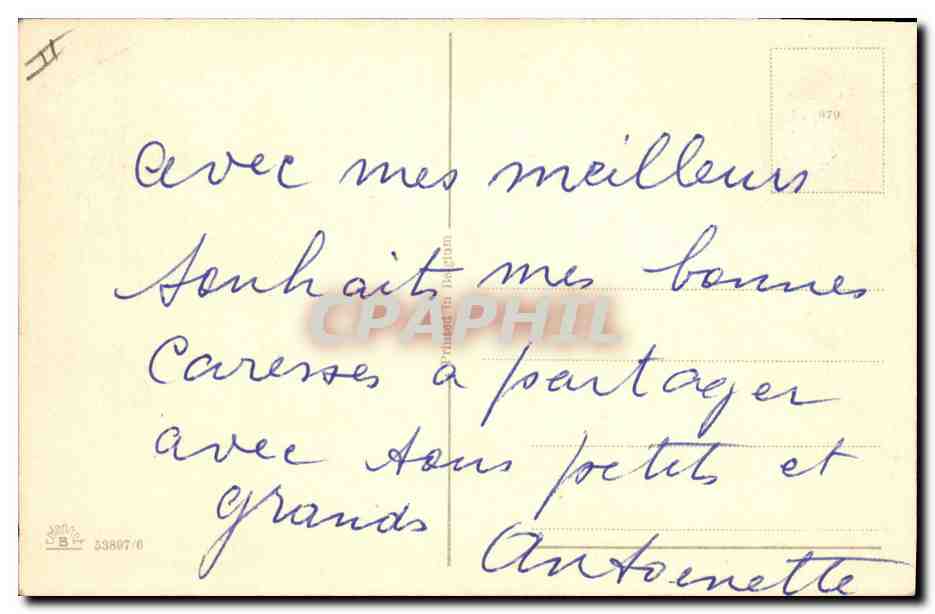 avec mes meilleurs
souhaits mes bonnes
Caresses a partager
avec tous petits et
grands
Antoinette
Printed in Belgium
CPAPHIL
979
B
53897/6
II